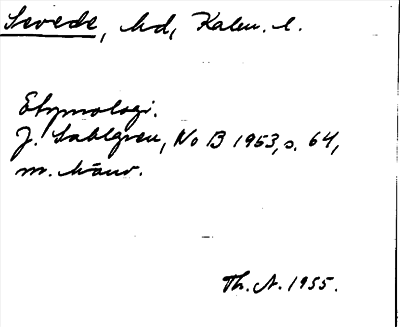 Sevede, hd, Kalm. l.
Etymologi.
J. Sahlgren, No B 1953, s. 64,
m. hänv.
Th. A. 1955.